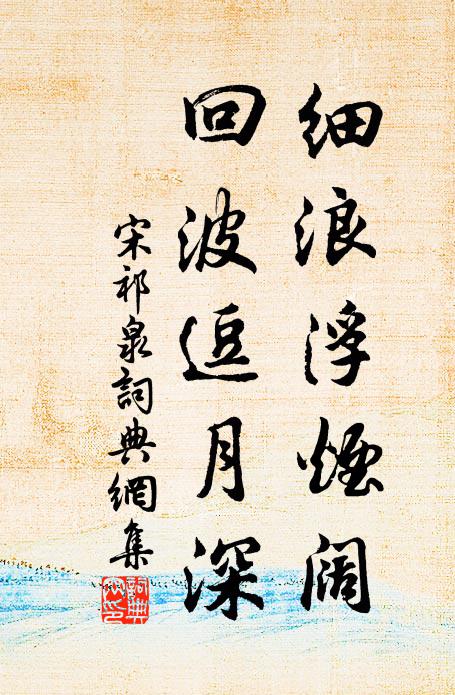 细浪浮烟阔
回波逗月深
宋祁泉詞典網集